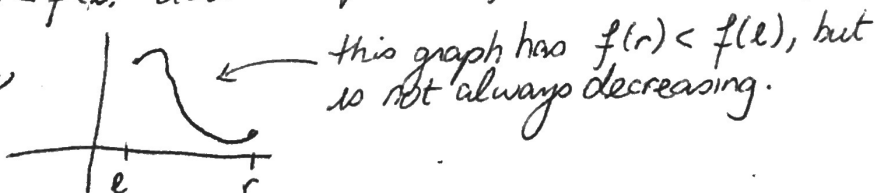 this graph has f(r) < f(l), but
is not always decreasing.
l r